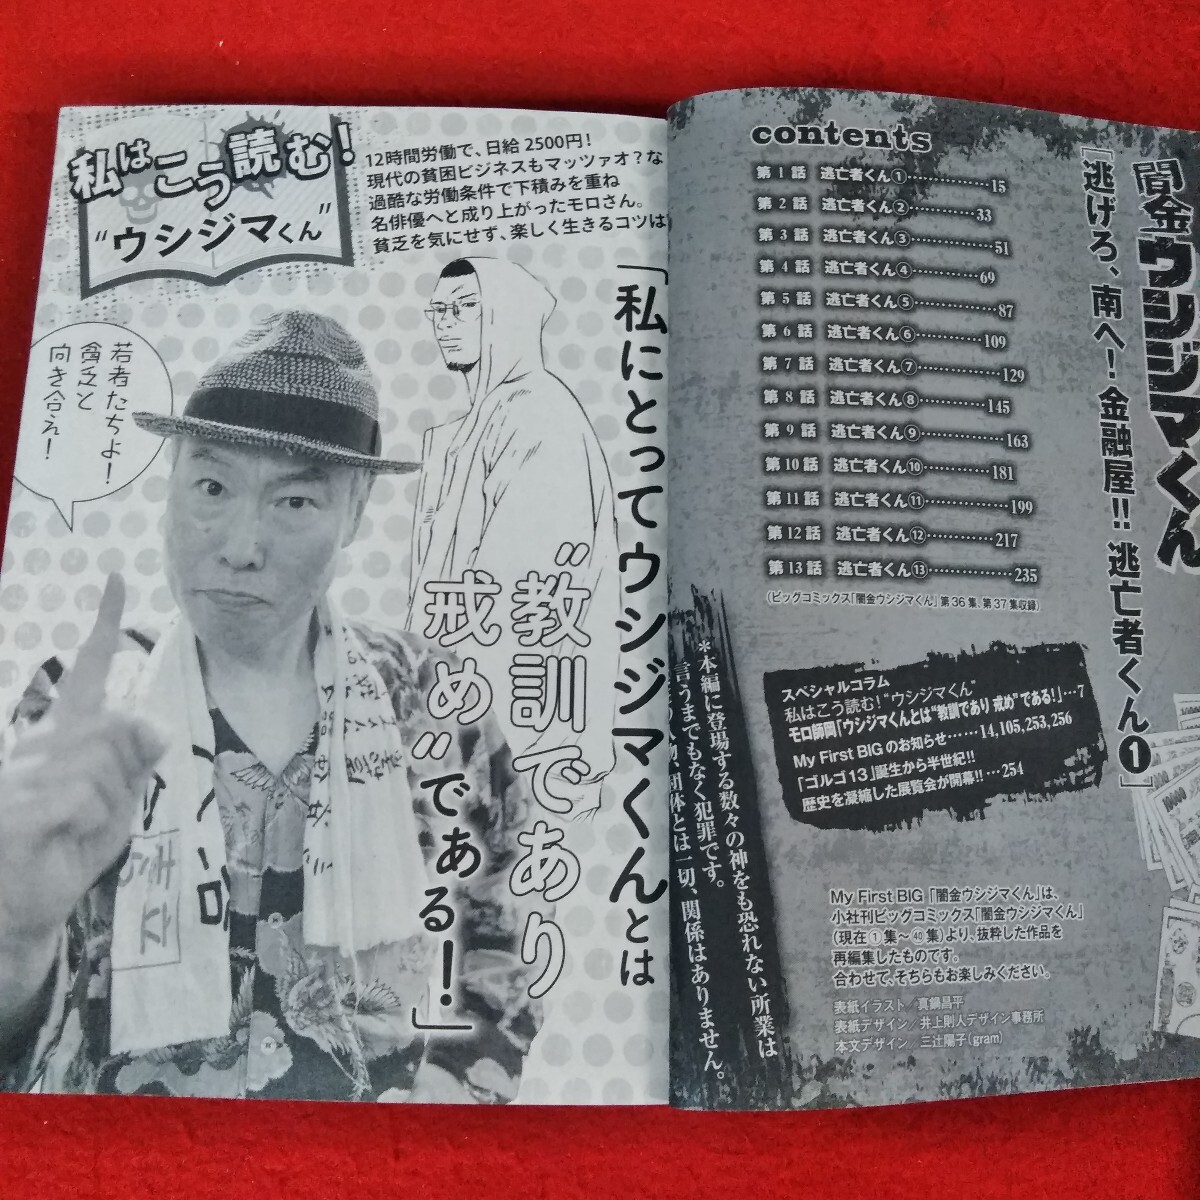 私はこう読む!
“ウシジマくん”
12時間労働で、日給2500円!
現代の貧困ビジネスもマッツァオ?な
過酷な労働条件で下積みを重ね
名俳優へと成り上がったモロさん。
貧乏を気にせず、楽しく生きるコツは
若者たちよ!
貧乏と
向き合え!
「私にとってウシジマくんとは
“教訓であり
戒め”である!」
闇金ウシジマくん
[逃げろ、南へ!金融屋!!逃亡者くん❶]
contents
第1話 逃亡者くん①……………15
第2話 逃亡者くん②……………33
第3話 逃亡者くん③……………51
第4話 逃亡者くん④……………69
第5話 逃亡者くん⑤……………87
第6話 逃亡者くん⑥……………109
第7話 逃亡者くん⑦……………129
第8話 逃亡者くん⑧……………145
第9話 逃亡者くん⑨……………163
第10話 逃亡者くん⑩……………181
第11話 逃亡者くん⑪……………199
第12話 逃亡者くん⑫……………217
第13話 逃亡者くん⑬……………235
(ビッグコミックス「闇金ウシジマくん」第36集、第37集収録)
スペシャルコラム
私はこう読む!“ウシジマくん”
モロ師岡「ウシジマくんとは“教訓であり 戒め”である!」…7
My First BIGのお知らせ……14,105,253,256
「ゴルゴ13」誕生から半世紀!!
歴史を凝縮した展覧会が開幕!!…254
*本編に登場する数々の神をも恐れない所業は
言うまでもなく犯罪です。
物、団体とは一切、関係はありません。
My First BIG「闇金ウシジマくん」は、
小社刊ビッグコミックス「闇金ウシジマくん」
(現在①集〜㊵集)より、抜粋した作品を
再編集したものです。
合わせて、そちらもお楽しみください。
表紙イラスト/真鍋昌平
表紙デザイン/井上則人デザイン事務所
本文デザイン/三辻陽子(gram)